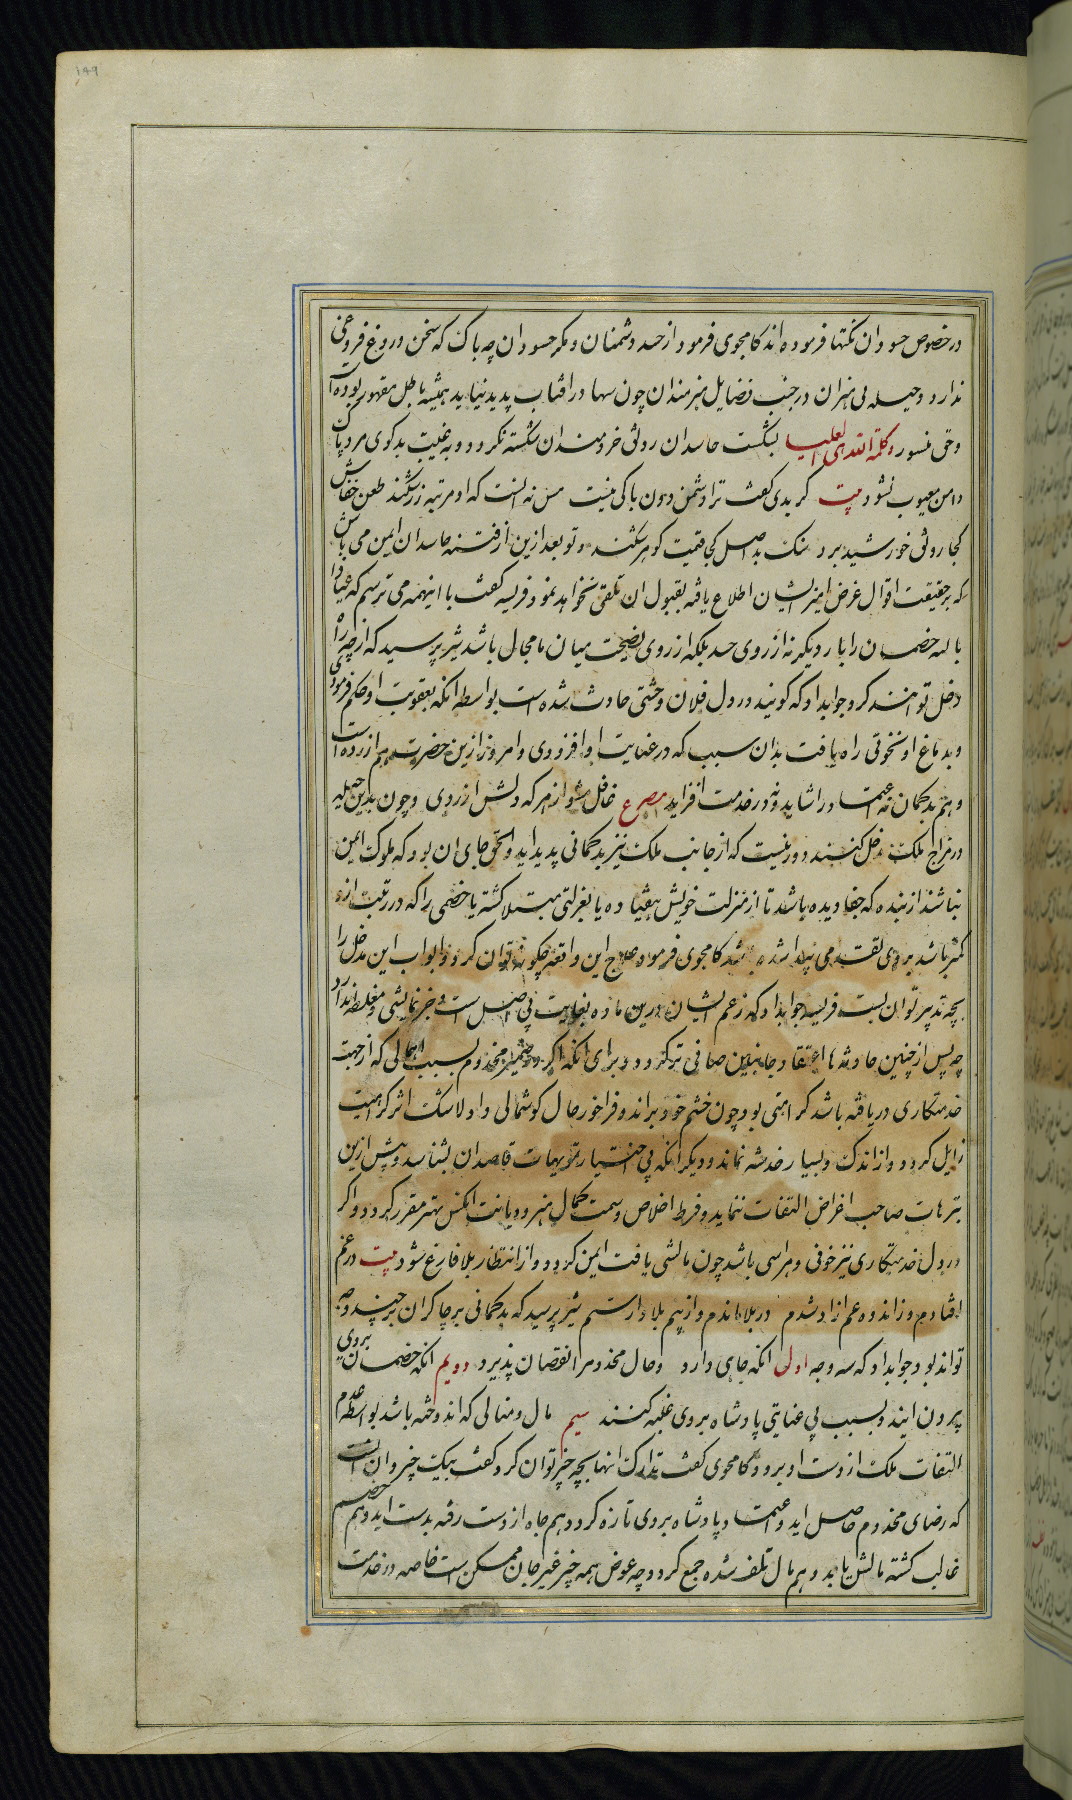 ۱۸۹
در خصوص حسودان نکتها فرموده اند کامجوی فرمود از حسد دشمنان و مکر حسودان چه باک که سخن دروغ فروغی
ندارد و حیله بی هنران در جنب فضایل هنرمندان چون سها در افتاب پدید نیاید همیشه باطل مقهور بوده است
و حق منصور و کلمة الله هی العلیا بشکست حاسدان رونق خردمندان شکسته نکردد و بغیبت بدکوی مرد پاک
دامن معیوب نشود بیت کر بدی کفت ترا دشمن دون باکی نیست مس نه انست که او مرتبه زر شکند طعن خفاش
کجا رونق خورشید برد سنک بد اصل کجا قیمت کوهر شکند و تو بعد ازین از فتنه حاسدان ایمن می باش
که بر حقیقت اقوال غرض امیز ایشان اطلاع یافته بقبول ان تلقی نخواهد نمود فریسه کفت با اینهمه می ترسم که عیاذا
بالله خصمان را بار دیکر نه از روی حسد بلکه از روی نصیحت میان ما مجال باشد شیر پرسید که از چه راه
دخل توانند کرد جوابداد که کویند در دل فلان وحشتی حادث شده است بواسطه انکه بعقوبت او حکم فرمودی
و بدماغ او نخوتی راه یافت بدان سبب که در عنایت او افزودی و امروز ازین حضرت هم ازرده است
و هم بدکمان نه اعتماد را شاید و نه در خدمت افزاید مصرع غافل مشو از هر که دلش ازردی و چون بدین حیله
در مزاج ملک دخل کنند دور نیست که از جانب ملک نیز بدکمانی پدید اید و الحق جای ان بود که ملوک ایمن
نباشند از بنده که جفا دیده باشد تا از منزلت خویش بیفتاده یا بعزلتی مبتلا کشته یا خصمی را که در رتبت ازو
کمتر باشد بروی تقدمی پیدا شده باشد کامجوی فرمود علاج این واقعه چکونه توان کرد و ابواب این مدخل را
بچه تدبیر توان بست فریسه جوابداد که زعم ایشان درین ماده بغایت بی اصل است و جز نمایشی و مغلطه ندارد
چه پس از چنین حادثه ها اعتقاد جانبین صافی تر کردد برای انکه اکر در ضمیر مخدوم بسبب اهمالی که از جهت
خدمتکاری دریافته باشد کراهتی بود چون خشم خود براند و فراخور حال کوشمالی داد لاشک اثر کراهیت
زایل کردد و از اندک و بسیار خدشه نماند و دیکر انکه بی اختیار تمویهات قاصدان بشناسد و پیش ازین
بترهات صاحب اغراض التفات ننماید و فرط اخلاص و سمت کمال هنر و دیانت انکس بهتر مقرر کردد و اکر
در دل خدمتکاری نیز خوفی و هراسی باشد چون مالشی یافت ایمن کردد و از انتظار بلا فارغ شود بیت در غم
افتادم و ز اندوه غم ازاد شدم در بلا ماندم و از بیم بلا وارستم شیر پرسید که بدکمانی بر چاکران بر چند وجه
تواند بود جوابداد که سه وجه اولی انکه جاهی دارد و حال مخدوم نقصان پذیرد دویم انکه خصمان بروی
بیرون ایند و بسبب بی عنایتی پادشاه بروی غلبه کنند سیم مال و منالی که اندوخته باشد بواسطه عدم
التفات ملک از دست او برود کامجوی کفت تدارک انها بچه چیز توان کرد کفت بیک چیز و ان انست
که رضای مخدوم حاصل اید و اعتماد پادشاه بروی تازه کردد هم جاه از دست رفته بدست اید و هم خصم
غالب کشته مالش یابد و هم مال تلف شده جمع کردد چه عوض همه چیز غیر جان ممکن است خاصه در خدمت